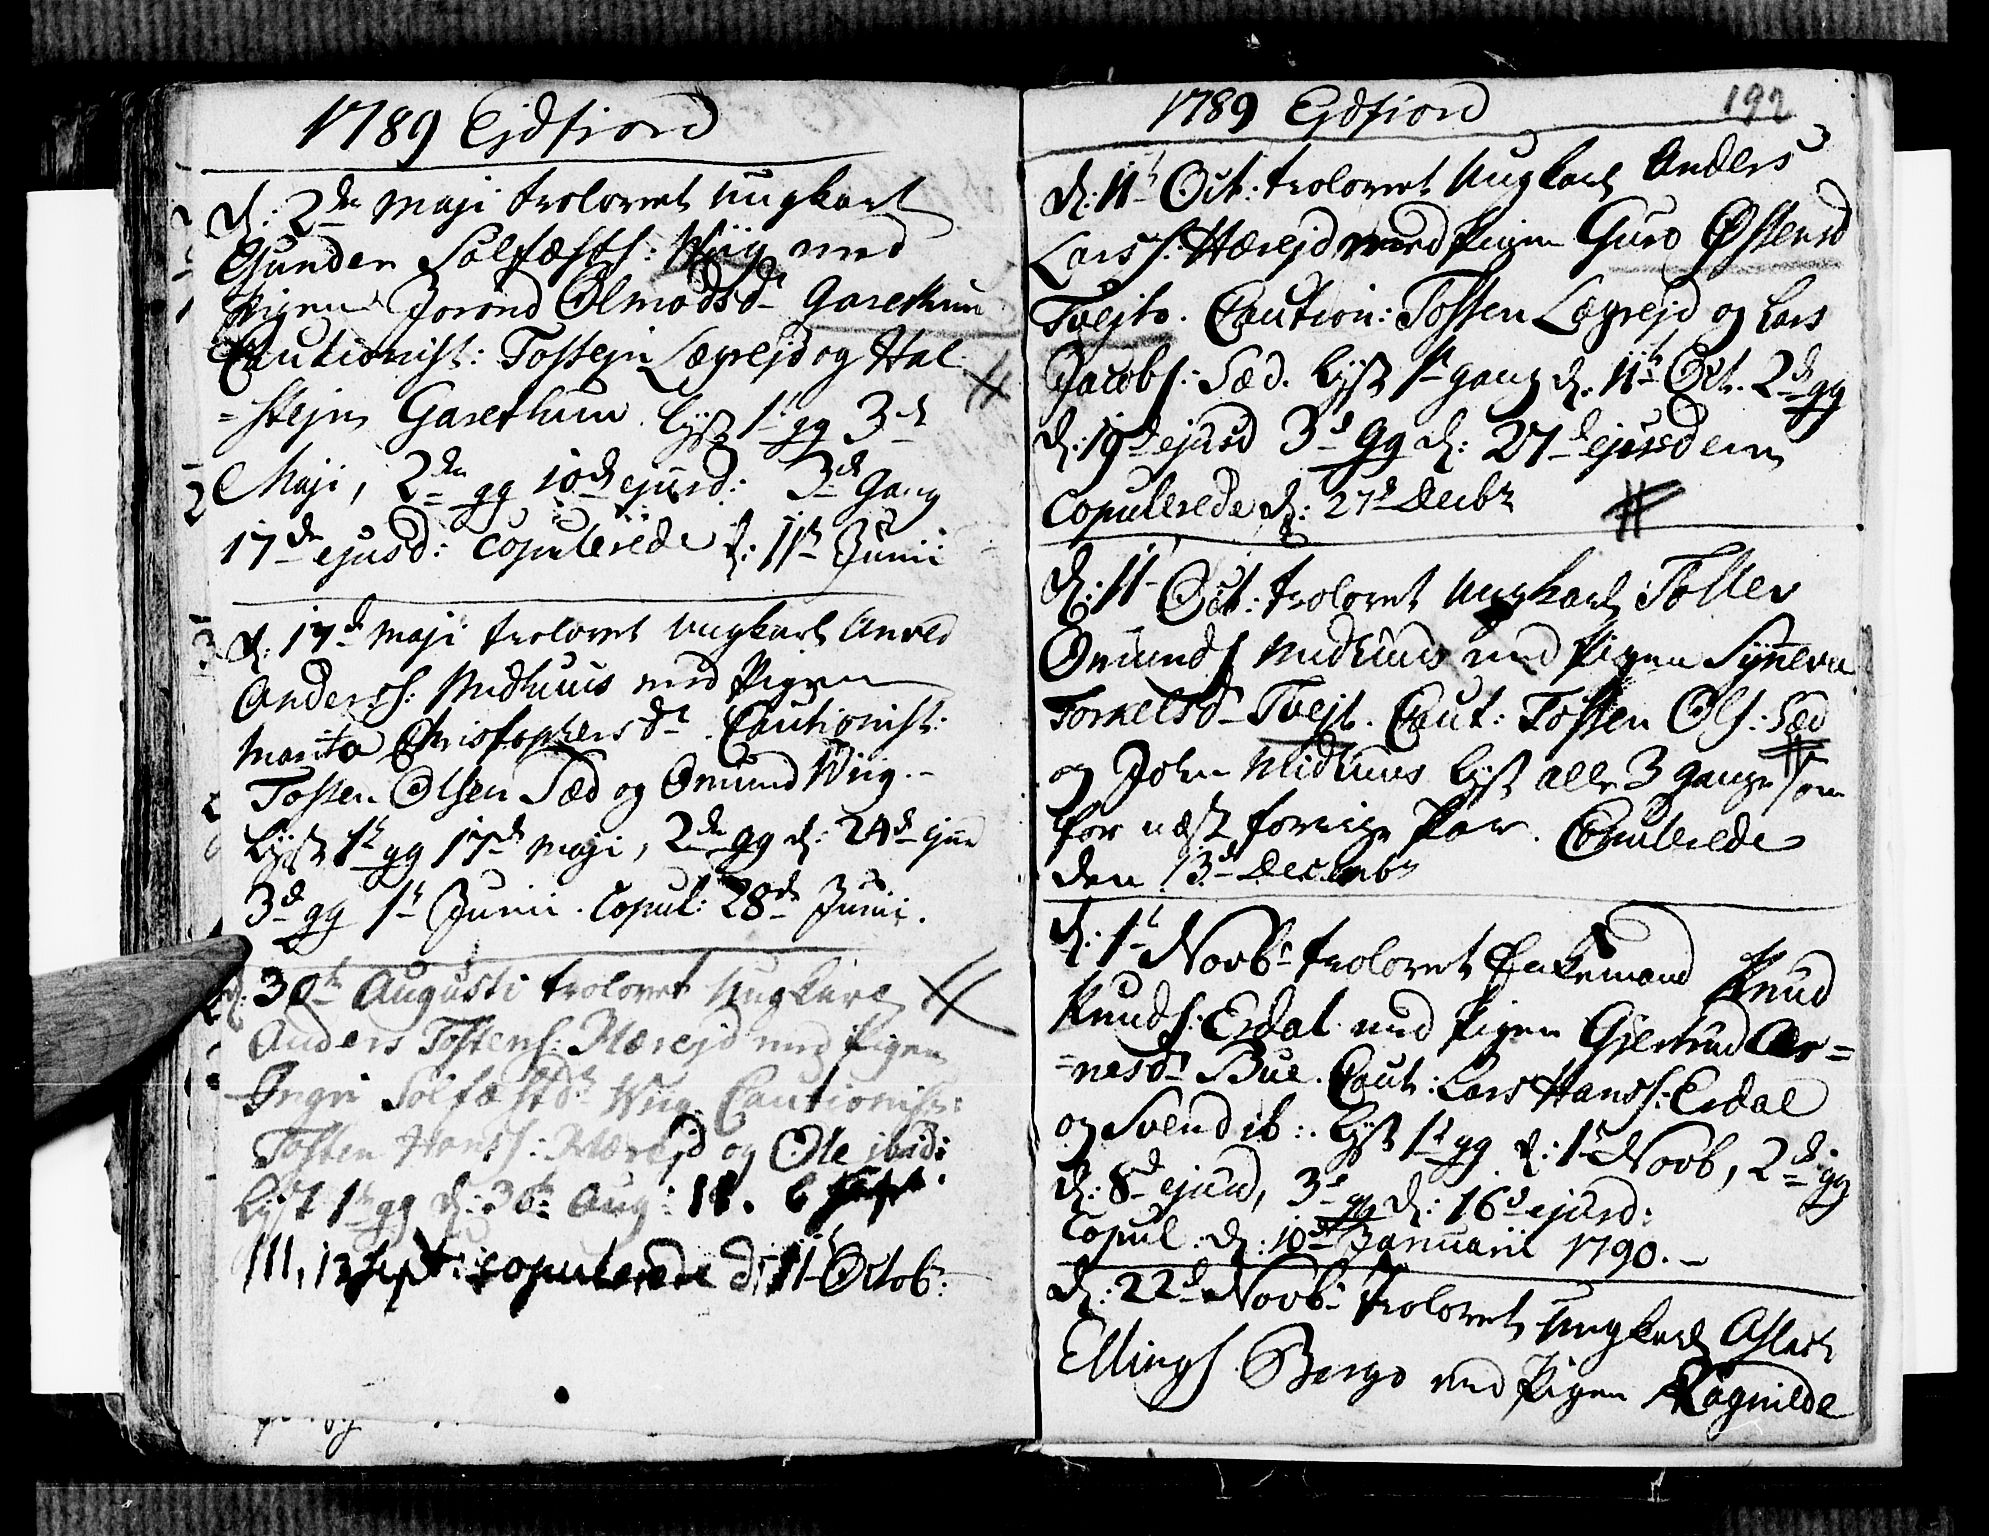 1789 Ejdfiord
d: 2den Maji trolovet Ungkarl
Gunder Solfæsts: Wiig med
Pigen Jorond Olmodsdr Garethun
Cautionist: Tostejn Lægrejd og Hal-
=stejn Garethun lyst 1t gg 3die
Maji, 2den gg 10d ejusd: 3die Gang
17den ejusd: Copulerede d: 11te Junii
d. 17d Maji trolovet Ungkarl Anved
Anderss: Midhuus med Pigen
Marita Christophersdr. Cautionist:
Tosten Olsen Sæd og Omund Wiig.-
lyst 1t gg 17d Maji, 2den gg d: 24d ejusd
3d gg 1t Junii. Copul: 28de Junii.
d: 30te Augusti trolovet Ungkarl
Anders Tostens: Hærejd med Pigen
Ingri Solfæstdr Wiig Cautionist:
Tosten Hanss: Hærejd og Ole ibid:
lyst 1t gg d: 30te Aug: II. 6 Sept.
III, 13 Sept: copulerede d: 11t Octob:
1789 Ejdfiord
192
d: 11t Oct: trolovet Ungkarl Anders
Larss: Hærejd med Pigen Guro Østensd
Tvejto. Caution: Tosten Lægrejd og Lars
Jacobs: Sæd. lyst 1t gang d. 11t Oct. 2d gg
d: 19d ejusd 3d gg d: 27d ejusdem
Copulerede d: 27d Decbr
d: 11t Oct: trolovet Ungkarl Tosten
Omunds Midhuus med Pigen Synneva
Torkelsdr Tvejt. Caut: Tosten Ols: Sæd
og John Midhuus lyst alle 3 gange som
for næst forrige Par. Copulerede
den 13d Decembr
d: 1t Novbr trolovet Enkemand Knud
Knuds: Erdal med Pigen Gjertrud Ar=
=nesdr Bue. Caut: Lars Hanss: Erdal
og Svend ib:. lyst 1t gg d: 1t Novb, 2d gg
d: 8d ejusd, 3d gg d: 16d ejusd:
Copul: d: 10d Januarii 1790.-
d: 22d Novbr trolovet Ungkarl Aslak
Ellings Berge med Pigen Ragnilde